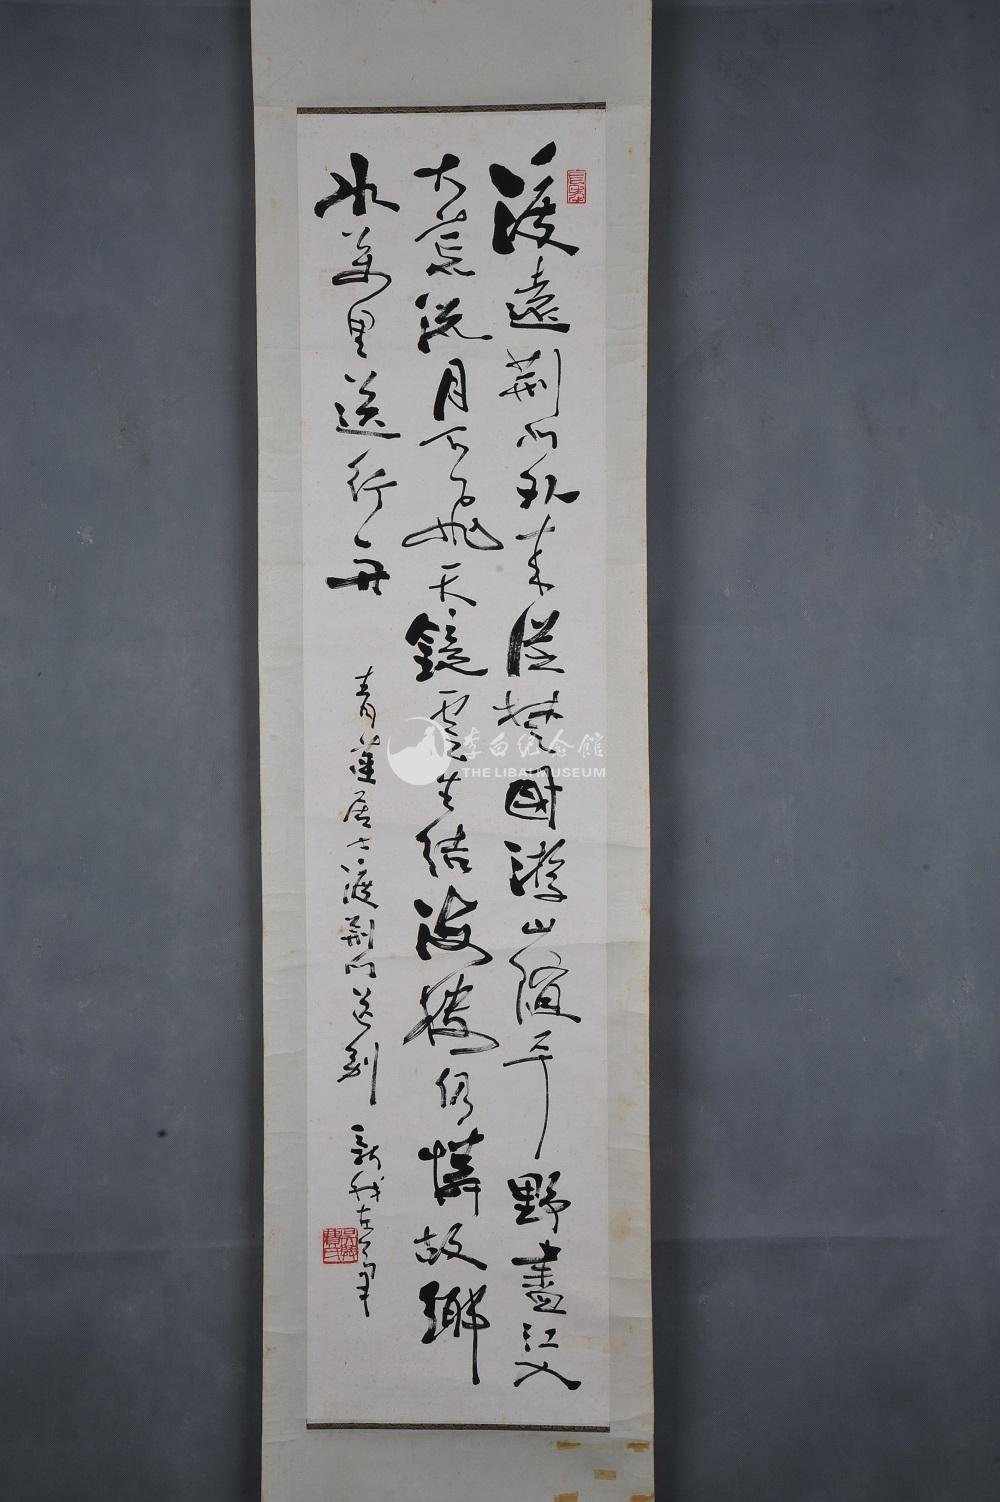 渡遠荆門外來從楚國游山隨平野盡江入
大荒流月下飛天鏡雲生結海樓仍憐故鄉
水萬里送行舟
青蓮居士渡荆門送别 新我左筆
李白纪念館
THE LIBAI MUSEUM